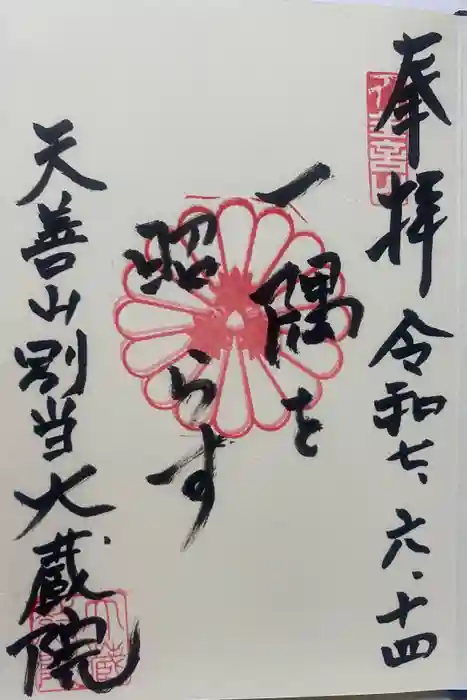 奉拝 令和七、六・十四
一隅を
照らす
天善山別当大蔵院